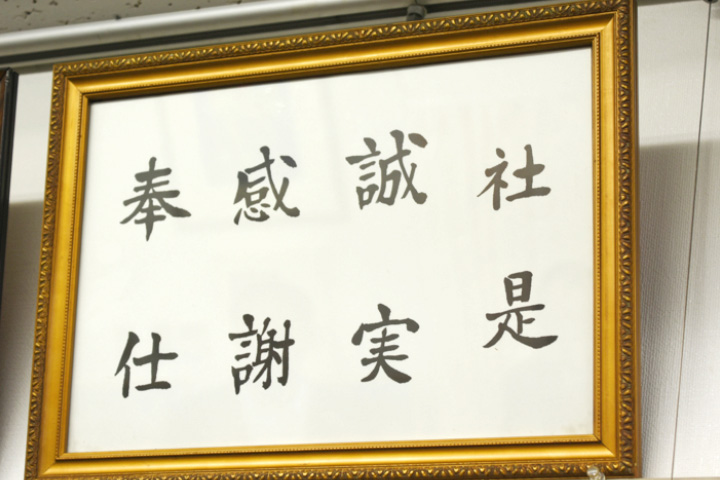 社是
誠実
感謝
奉仕